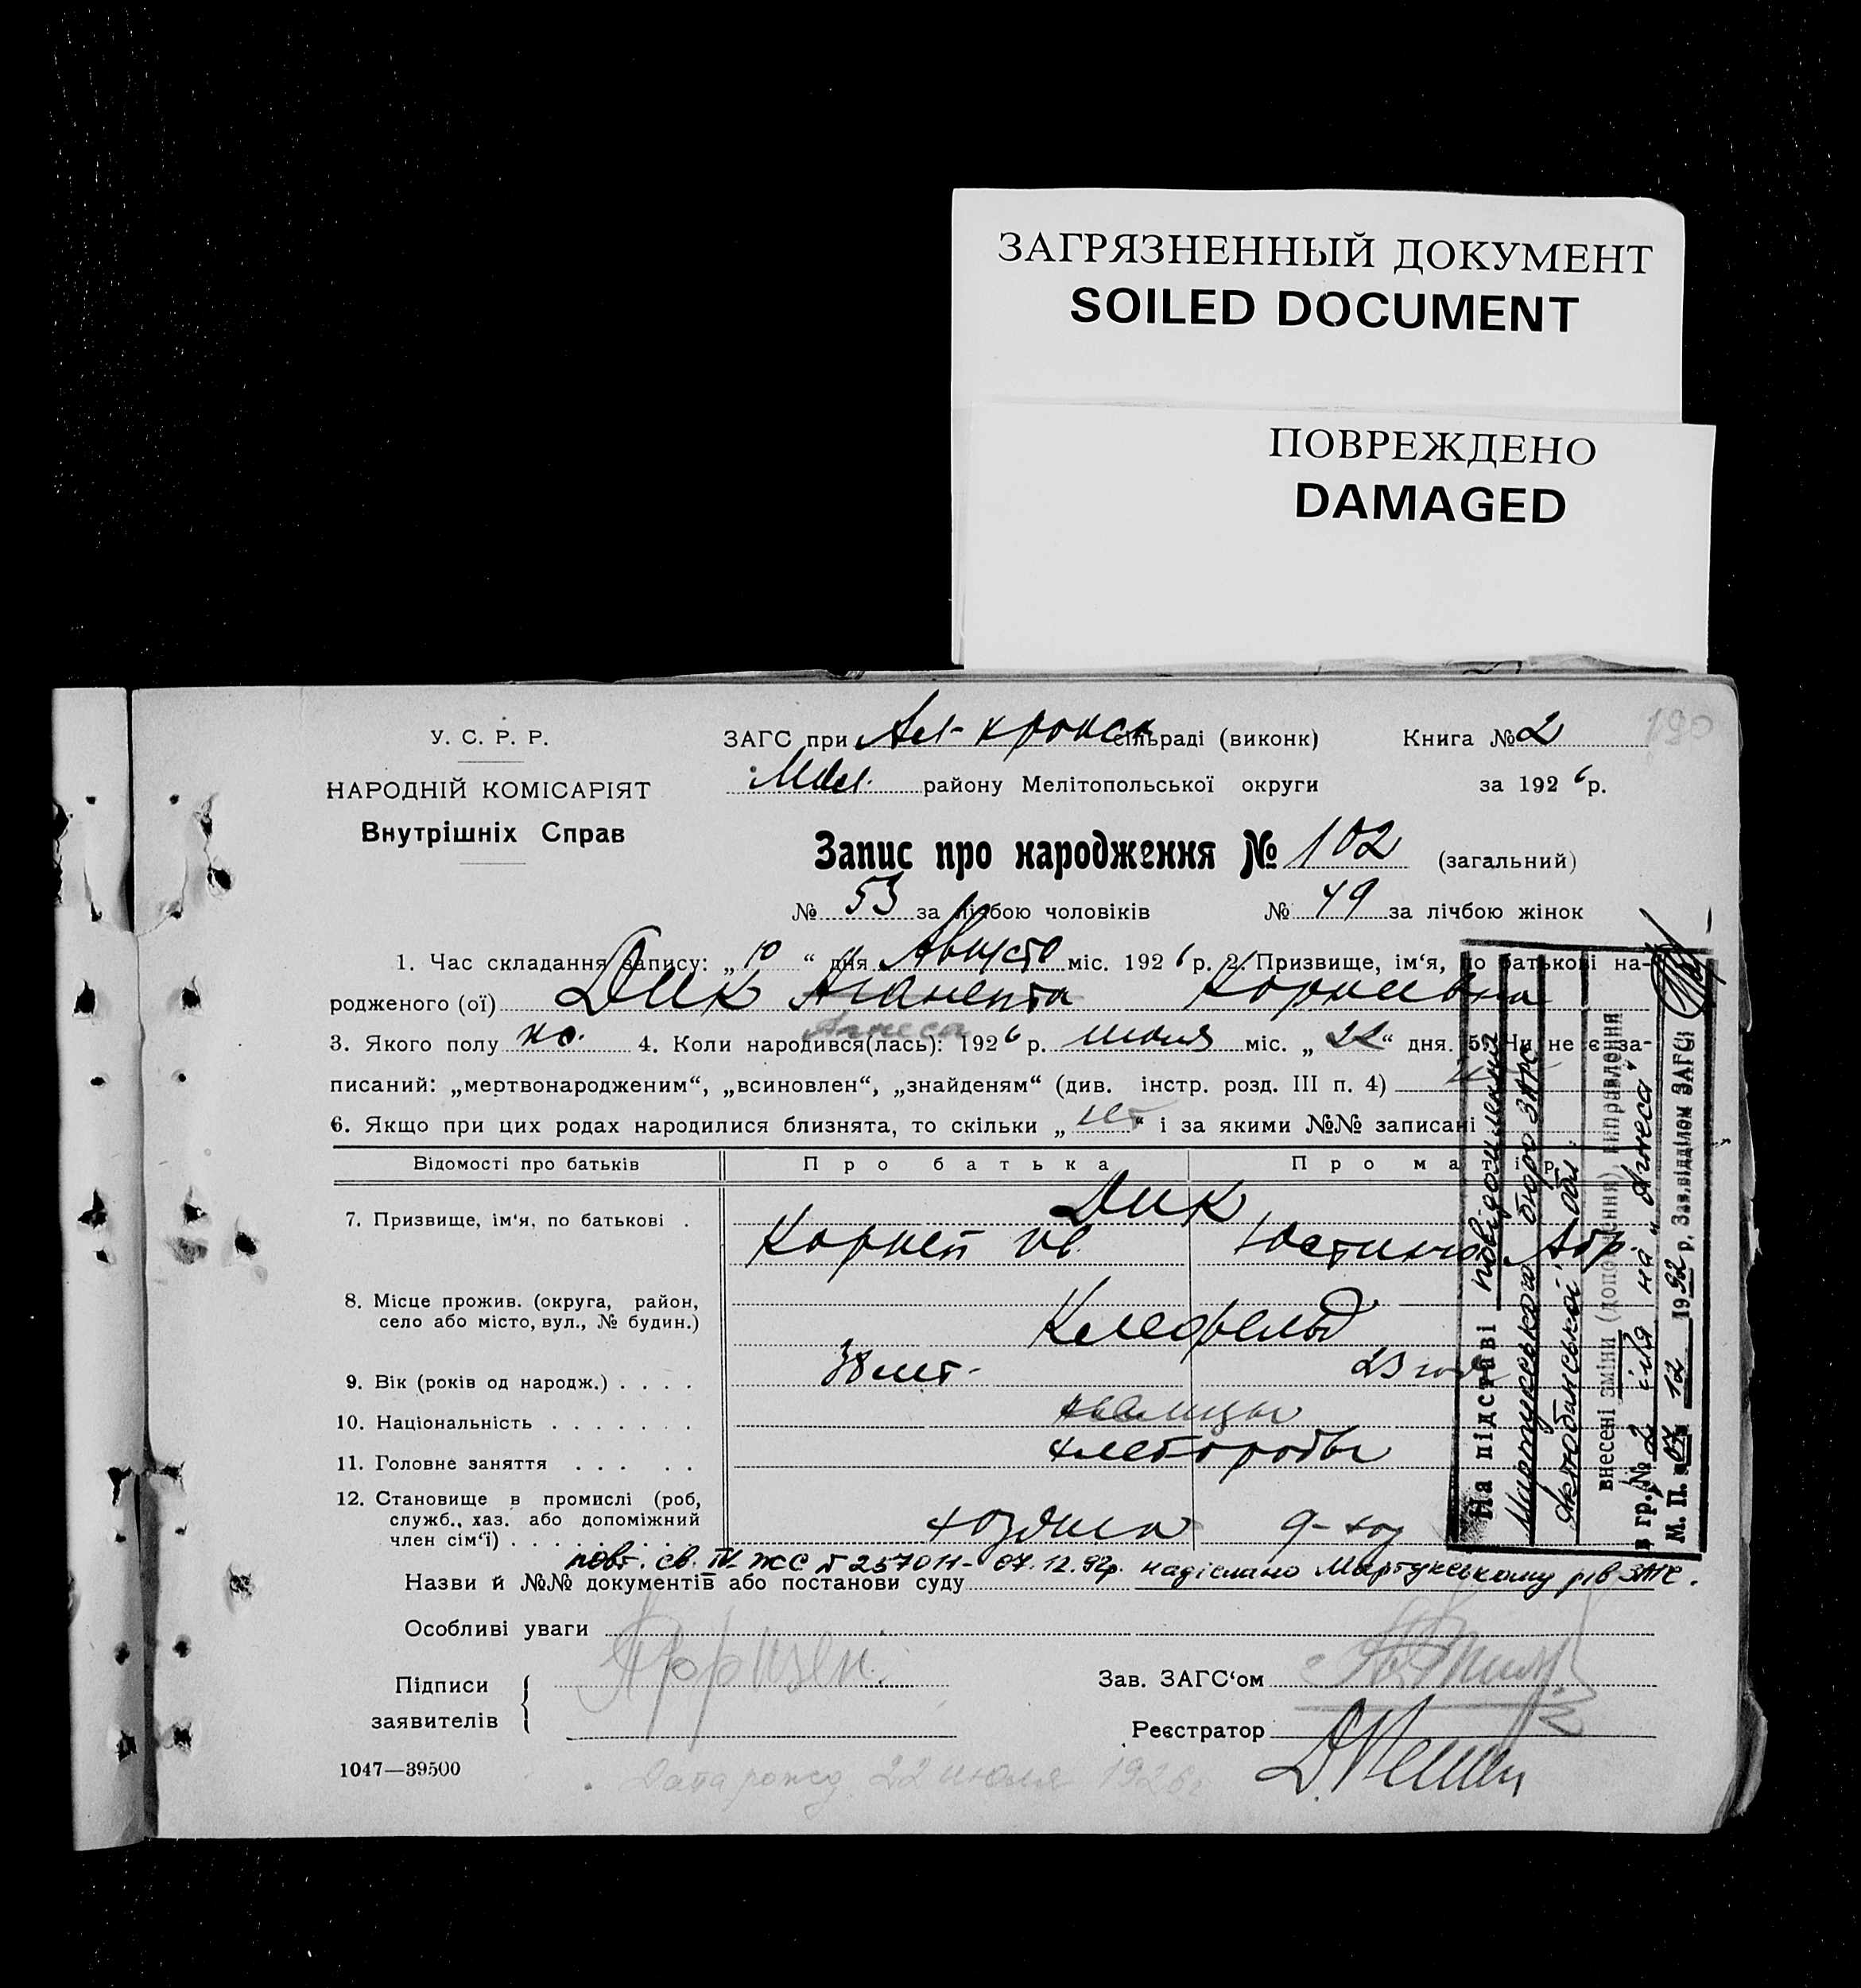 ЗАГРЯЗНЕННЫЙ ДОКУМЕНТ
SOILED DOCUMENT
ПОВРЕЖДЕНО
DAMAGED
190
У. С. Р. Р.
НАРОДНІЙ КОМІСАРІЯТ
Внутрішніх Справ
ЗАГС при сільраді (виконк) Книга № 2
району Мелітопольської округи за 1926 р.
Запис про народження № 102 (загальний)
№ 53 за лічбою чоловіків № 49 за лічбою жінок
1. Час складання запису: „10“ дня Августа міс. 1926 р. 2. Призвище, ім‘я, по батькові на-
родженого (ої) Дик Аганепта Корнеевна
Агнеса
3. Якого полу жс. 4. Коли народився(лась): 1926 р. июля міс. „22“ дня. 5. Чи не є за-
писаний: „мертвонародженим“, „всиновлен“, „знайденям“ (див. інстр. розд. III п. 4)
6. Якщо при цих родах народилися близнята, то скільки „нет“ і за якими №№ записані
Відомості про батьків Про батька Про матір
7. Призвище, ім‘я, по батькові . Дик
Корней Ив. Юстина Абр.
8. Місце прожив. (округа, район,
село або місто, вул., № будин.) Клефельд
9. Вік (років од народж.) . . . . 38 лет 23 года
10. Національність . . . . . . . немцы
11. Головне заняття . . . . . хлеборобы
12. Становище в промислі (роб,
служб., хаз. або допоміжний
член сім‘ї) . . . . . . . . . хозяин
повт. св. IV-ЖС № 257011- 07.12.92р. надіслано Мартукському рів ЗАГС.
Назви й №№ документів або постанови суду
Особливі уваги
Підписи
заявителів
Зав. ЗАГС‘ом
Реєстратор
1047—39500
Дата рожд 22 июля 1926г
На підставі повідомлення
Мартукського бюро ЗАГС
Актюбинської обл.
внесені зміни (доповнення) виправлення
в гр. № 2 ім'я на „Агнеса“
М. П. 07 12 1992 р. Зав. відділом ЗАГС: